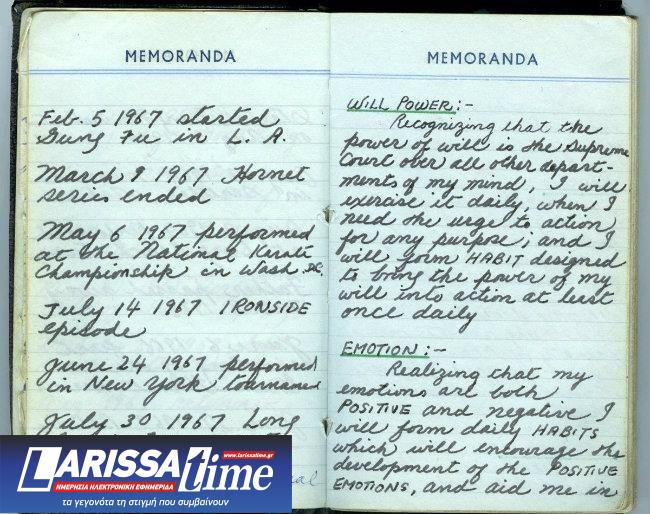 MEMORANDA
Feb. 5 1967 started
Gung Fu in L. A.
March 9 1967 Hornet
series ended
May 6 1967 performed
at the National Karate
Championship in Wash DC.
July 14 1967 IRONSIDE
episode
June 24 1967 performed
in New York tournament
July 30 1967 Long
MEMORANDA
WILL POWER:-
Recognizing that the
power of will is the supreme
Court over all other depart-
ments of my mind, I will
exercise it daily, when I
need the urge to action
for any purpose; and I
will form HABIT designed
to bring the power of my
will into action at least
once daily
EMOTION:-
Realizing that my
emotions are both
POSITIVE and negative I
will form daily HABITS
which will encourage the
development of the POSITIVE
EMOTIONS, and aid me in
LARISSAtime
www.larissatime.gr
ΗΜΕΡΗΣΙΑ ΗΛΕΚΤΡΟΝΙΚΗ ΕΦΗΜΕΡΙΔΑ
τα γεγονότα τη στιγμή που συμβαίνουν